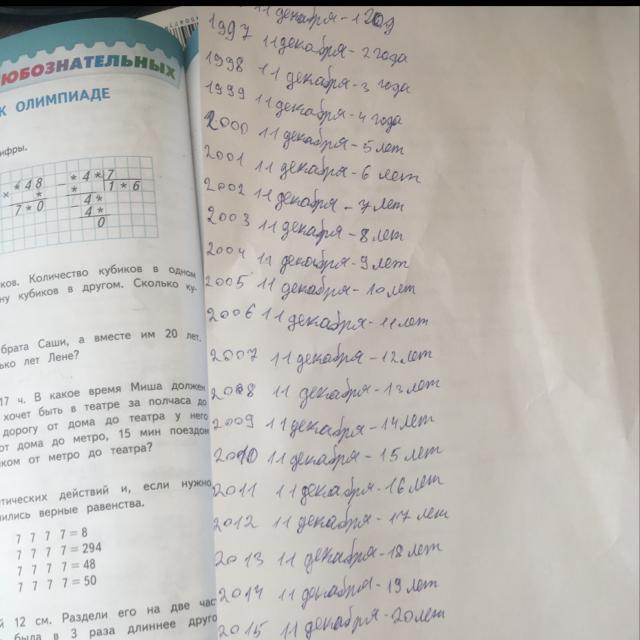 ЮБОЗНАТЕЛЬНЫХ
К ОЛИМПИАДЕ
ифры.
* 4 8
× *
7 * 0
* 4 * 7
* 1 * 6
4 *
4 *
0
ков. Количество кубиков в одном
ну кубиков в другом. Сколько ку-
брата Саши, а вместе им 20 лет.
ько лет Лене?
17 ч. В какое время Миша должен
хочет быть в театре за полчаса до
дорогу от дома до театра у него
от дома до метро, 15 мин поездом
ком от метро до театра?
тических действий и, если нужно,
лись верные равенства.
7 7 7 7 = 8
7 7 7 7 = 294
7 7 7 7 = 48
7 7 7 7 = 50
й 12 см. Раздели его на две час
была в 3 раза длиннее друго
11 декабря - 1 год
1997 11 декабря - 2 года
1998 11 декабря - 3 года
1999 11 декабря - 4 года
2000 11 декабря - 5 лет
2001 11 декабря - 6 лет
2002 11 декабря - 7 лет
2003 11 декабря - 8 лет
2004 11 декабря - 9 лет
2005 11 декабря - 10 лет
2006 11 декабря - 11 лет
2007 11 декабря - 12 лет
2008 11 декабря - 13 лет
2009 11 декабря - 14 лет
2010 11 декабря - 15 лет
2011 11 декабря - 16 лет
2012 11 декабря - 17 лет
2013 11 декабря - 18 лет
2014 11 декабря - 19 лет
2015 11 декабря - 20 лет